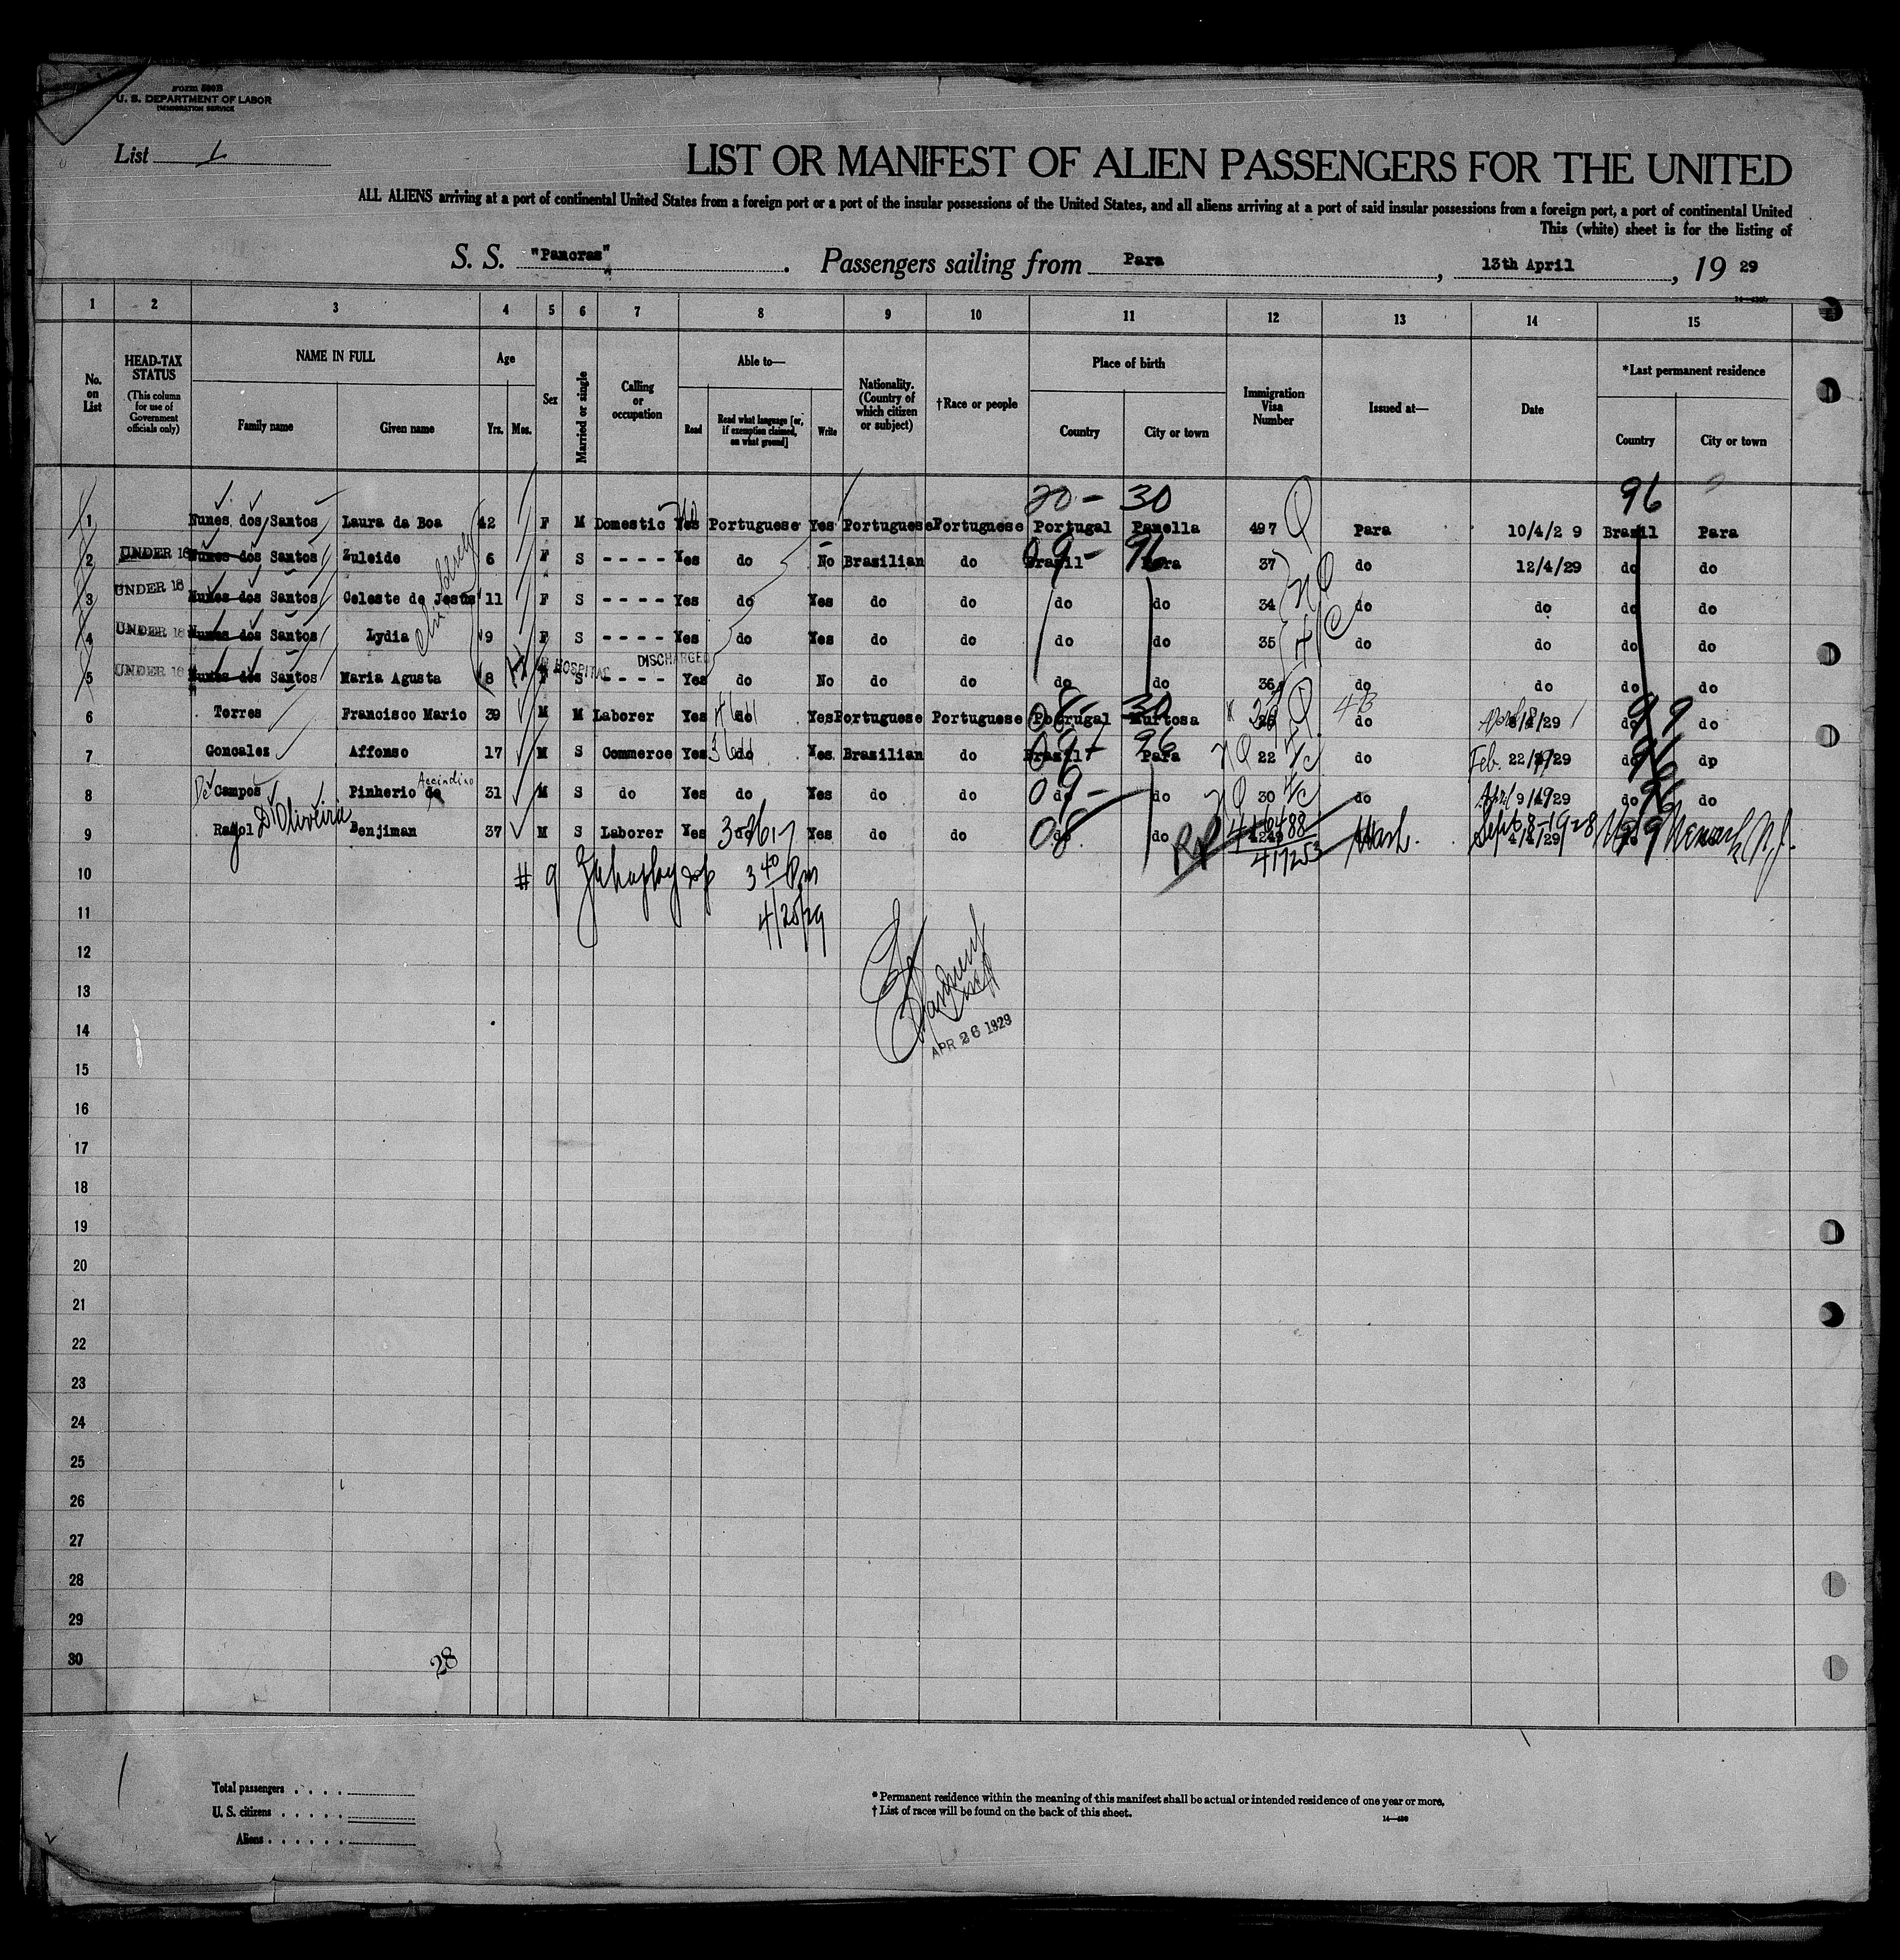 Form 500B
U. S. DEPARTMENT OF LABOR
IMMIGRATION SERVICE
List 1
LIST OR MANIFEST OF ALIEN PASSENGERS FOR THE UNITED
ALL ALIENS arriving at a port of continental United States from a foreign port or a port of the insular possessions of the United States, and all aliens arriving at a port of said insular possessions from a foreign port, a port of continental United
This (white) sheet is for the listing of
S. S. "Pancras" . Passengers sailing from Para , 13th April , 19 29
1 2 3 4 5 6 7 8 9 10 11 12 13 14 15
No. on List
HEAD-TAX STATUS (This column for use of Government officials only)
NAME IN FULL Family name Given name
Age Yrs. Mos.
Sex
Married or single
Calling or occupation
Able to— Read Read what language [or, if exemption claimed, on what ground] Write
Nationality. (Country of which citizen or subject)
†Race or people
Place of birth Country City or town
Immigration Visa Number
Issued at—
Date
*Last permanent residence Country City or town
20 - 30 96
1 Nunes dos Santos Laura da Boa 42 F M Domestic Yes Portuguese Yes Portuguese Portuguese Portugal Panella 497 Para 10/4/2 9 Brasil Para
2 UNDER 16 Nunes dos Santos Zuleide 6 F S - - - - Yes do No Brazilian do Brasil Para 37 do 12/4/29 do do
3 UNDER 16 Nunes dos Santos Celeste de Jesus 11 F S - - - - Yes do Yes do do do do 34 do do do do
4 UNDER 16 Nunes dos Santos Lydia 9 F S - - - - Yes do Yes do do do do 35 do do do do
children
IN HOSPITAL DISCHARGED
5 UNDER 16 Nunes dos Santos Maria Agusta 8 F S - - - - Yes do No do do do do 36 do do do do
6 Torres Francisco Mario 39 M M Laborer Yes do Yes Portuguese Portuguese Portugal Murtosa do /29 do do
7 Goncales Affonso 17 M S Commerce Yes do Yes Brazilian do Brasil Para 22 do Feb. 22/29 do do
8 De Campos Pinherio de 31 M S do Yes do Yes do do do 30 do April 9/29 do do
9 D'Oliveira Benjiman 37 M S Laborer Yes do Yes do do do do 417253 Wash. Sept 8-1928 Newark, N.J.
10 # 9 3 40 Pm
11 4/26/29
12
13
14 APR 26 1929
15
16
17
18
19
20
21
22
23
24
25
26
27
28
29
30 28
Total passengers . . . .
U. S. citizens . . . . .
Aliens . . . . . .
* Permanent residence within the meaning of this manifest shall be actual or intended residence of one year or more.
† List of races will be found on the back of this sheet.